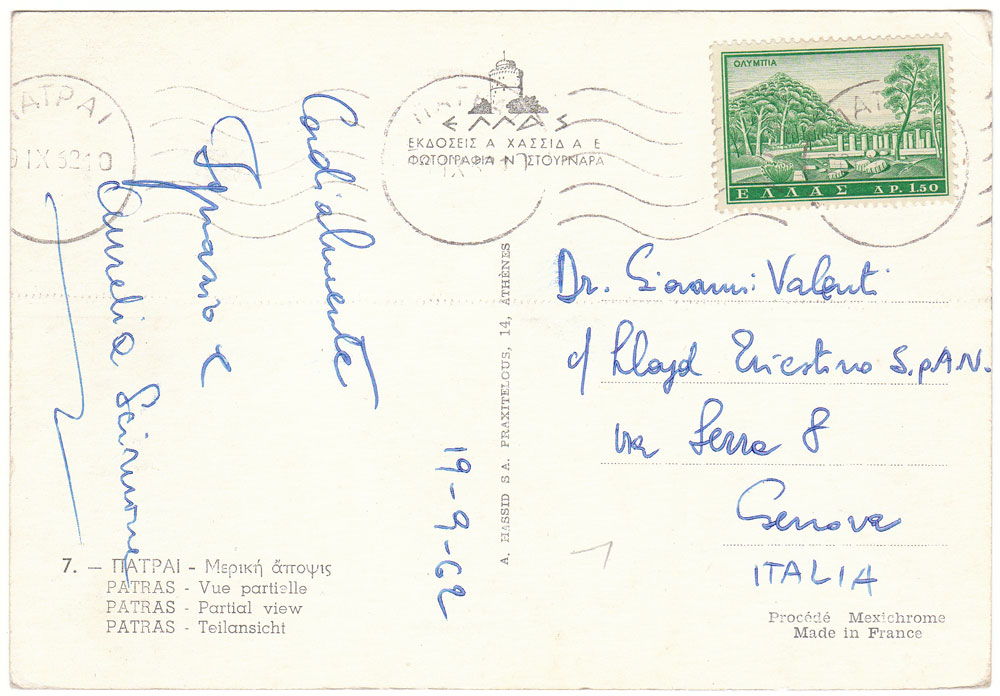 ΠΑΤΡΑΙ
9 IX 62 10
ΕΛΛΑΣ
ΕΚΔΟΣΕΙΣ Α ΧΑΣΣΙΔ Α Ε
ΦΩΤΟΓΡΑΦΙΑ Ν ΣΤΟΥΡΝΑΡΑ
ΟΛΥΜΠΙΑ
ΕΛΛΑΣ ΔΡ. 1.50
Cordialmente
e
Aurelia
19-9-62
7. – ΠΑΤΡΑΙ - Μερική ἄποψις
PATRAS - Vue partielle
PATRAS - Partial view
PATRAS - Teilansicht
A. HASSID S A. PRAXITELOUS, 14, ATHÈNES
Dr. Giovanni Valenti
c/ Lloyd Triestino S.p.A.N.
via Serra 8
Genova
ITALIA
Procédé Mexichrome
Made in France